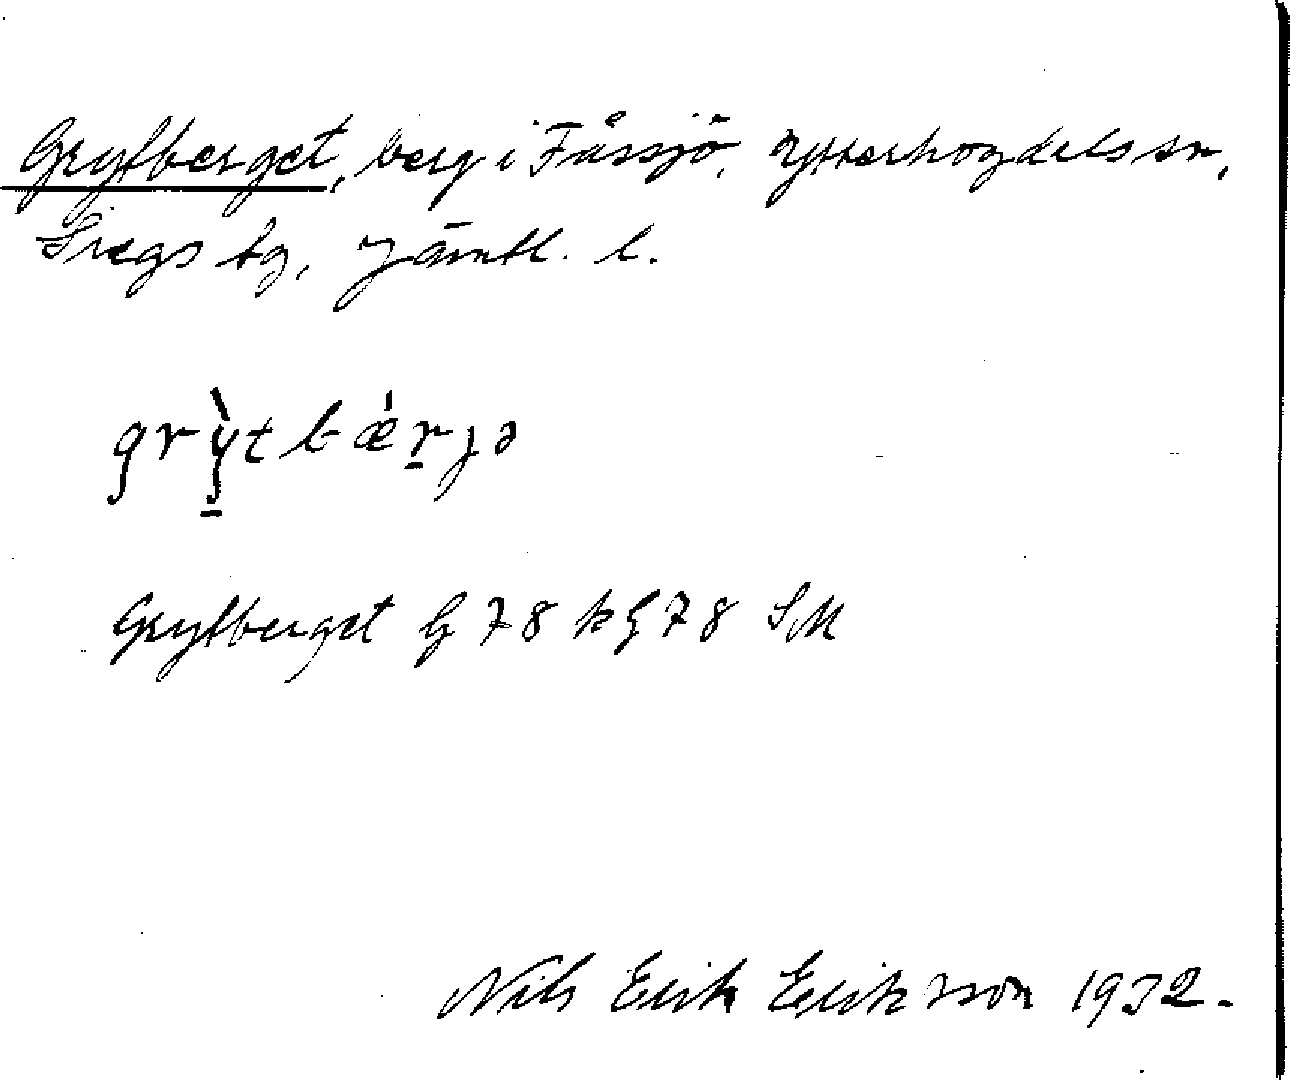 Grytberget, berg i Fåssjö, Ytterhogdals sn,
Svegs tg, Jämtl. l.
grỳtbǽrjə
Grytberget G 78 k G 78 SM
Nils Erik Eriksson 1932.